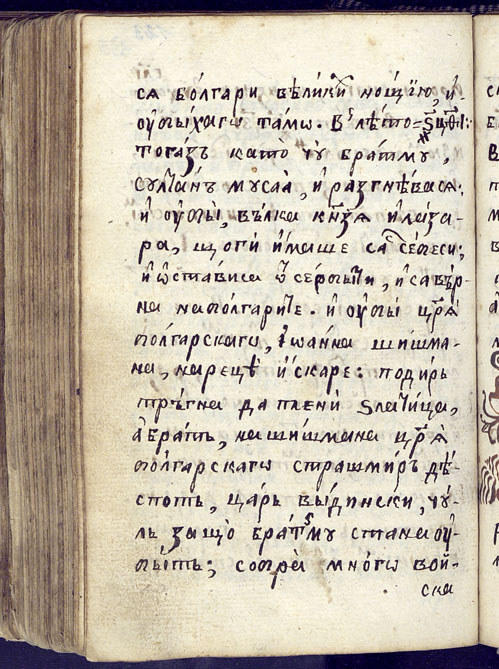 сѧ бо́лгари вѣ́лики но́щїю, и҆
оу҆бы́хагѡ та́мѡ. В лѣ́то ҂ѕцѳі:
тога́зъ като̀ чу братму,
султа́нъ мусаа, и҆ разгнѣ́васѧ:
и҆ оу҆бы̀, вълка кн҃зѧ и҆ла́за-
ра, щоги̏ и҆́маше са се́беси;
и҆ ѡ҆ста́виса ѿ се́рбыти, и҆ савѣр-
на наболга́рите. и҆ оу҆бы̀ цр҃ѧ̀
бо́лгарскагѡ, і҆ѡанна шишма-
на, нарецѣ̀ и҆́скаре: подирь
тръ́гна да плени ѕла́тица,
а҆братъ, на шишма́на цр҃ѧ̀
болгарскагѡ страшмиръ дѣ́-
спотъ, царь вы́дински, чу́-
лъ защо̀ бра́тму стана оу҆-
бытъ; собра̀ мно́гѡ вой-
ска